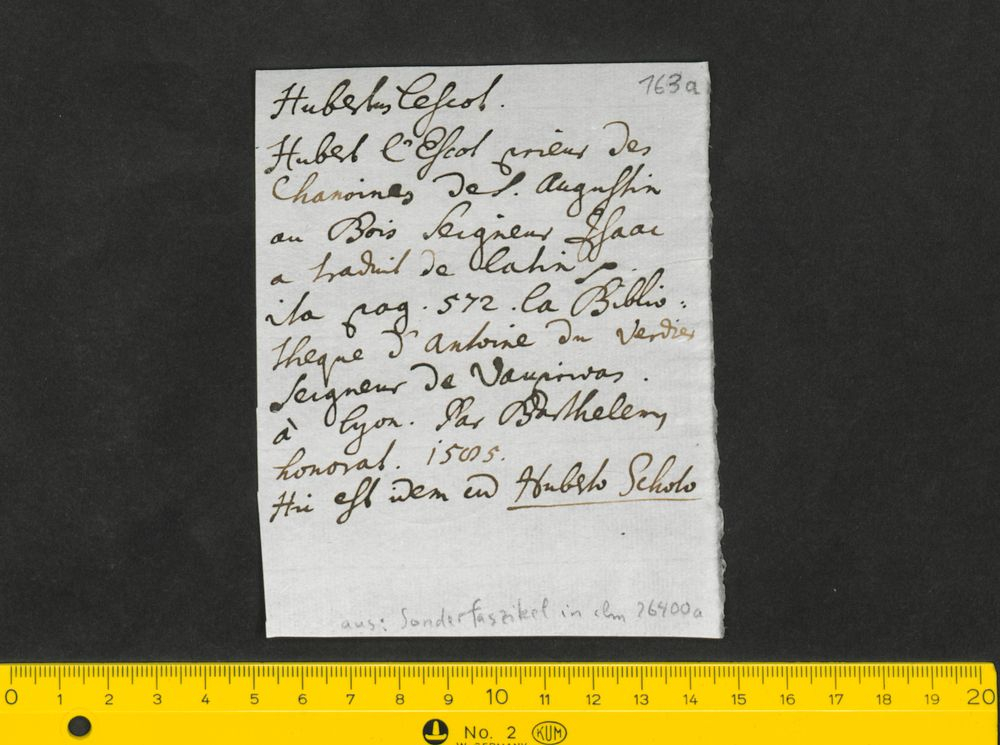 163a
Hubertus Lescot.
Hubert l'Escot prieur des
Chanoines de S. Augustin
au Bois Seigneur Isaac
a traduit de latin
ita pag. 572. la Biblio:
theque d'Antoine du Verdier
Seigneur de Vauprivas.
à Lyon. Par Barthelemy
honorat. 1585.
Hic est idem cum Huberto Schoto
aus: Sonderfaszikel in clm 26400a
0 1 2 3 4 5 6 7 8 9 10 11 12 13 14 15 16 17 18 19 20
No. 2 KUM
W. GERMANY